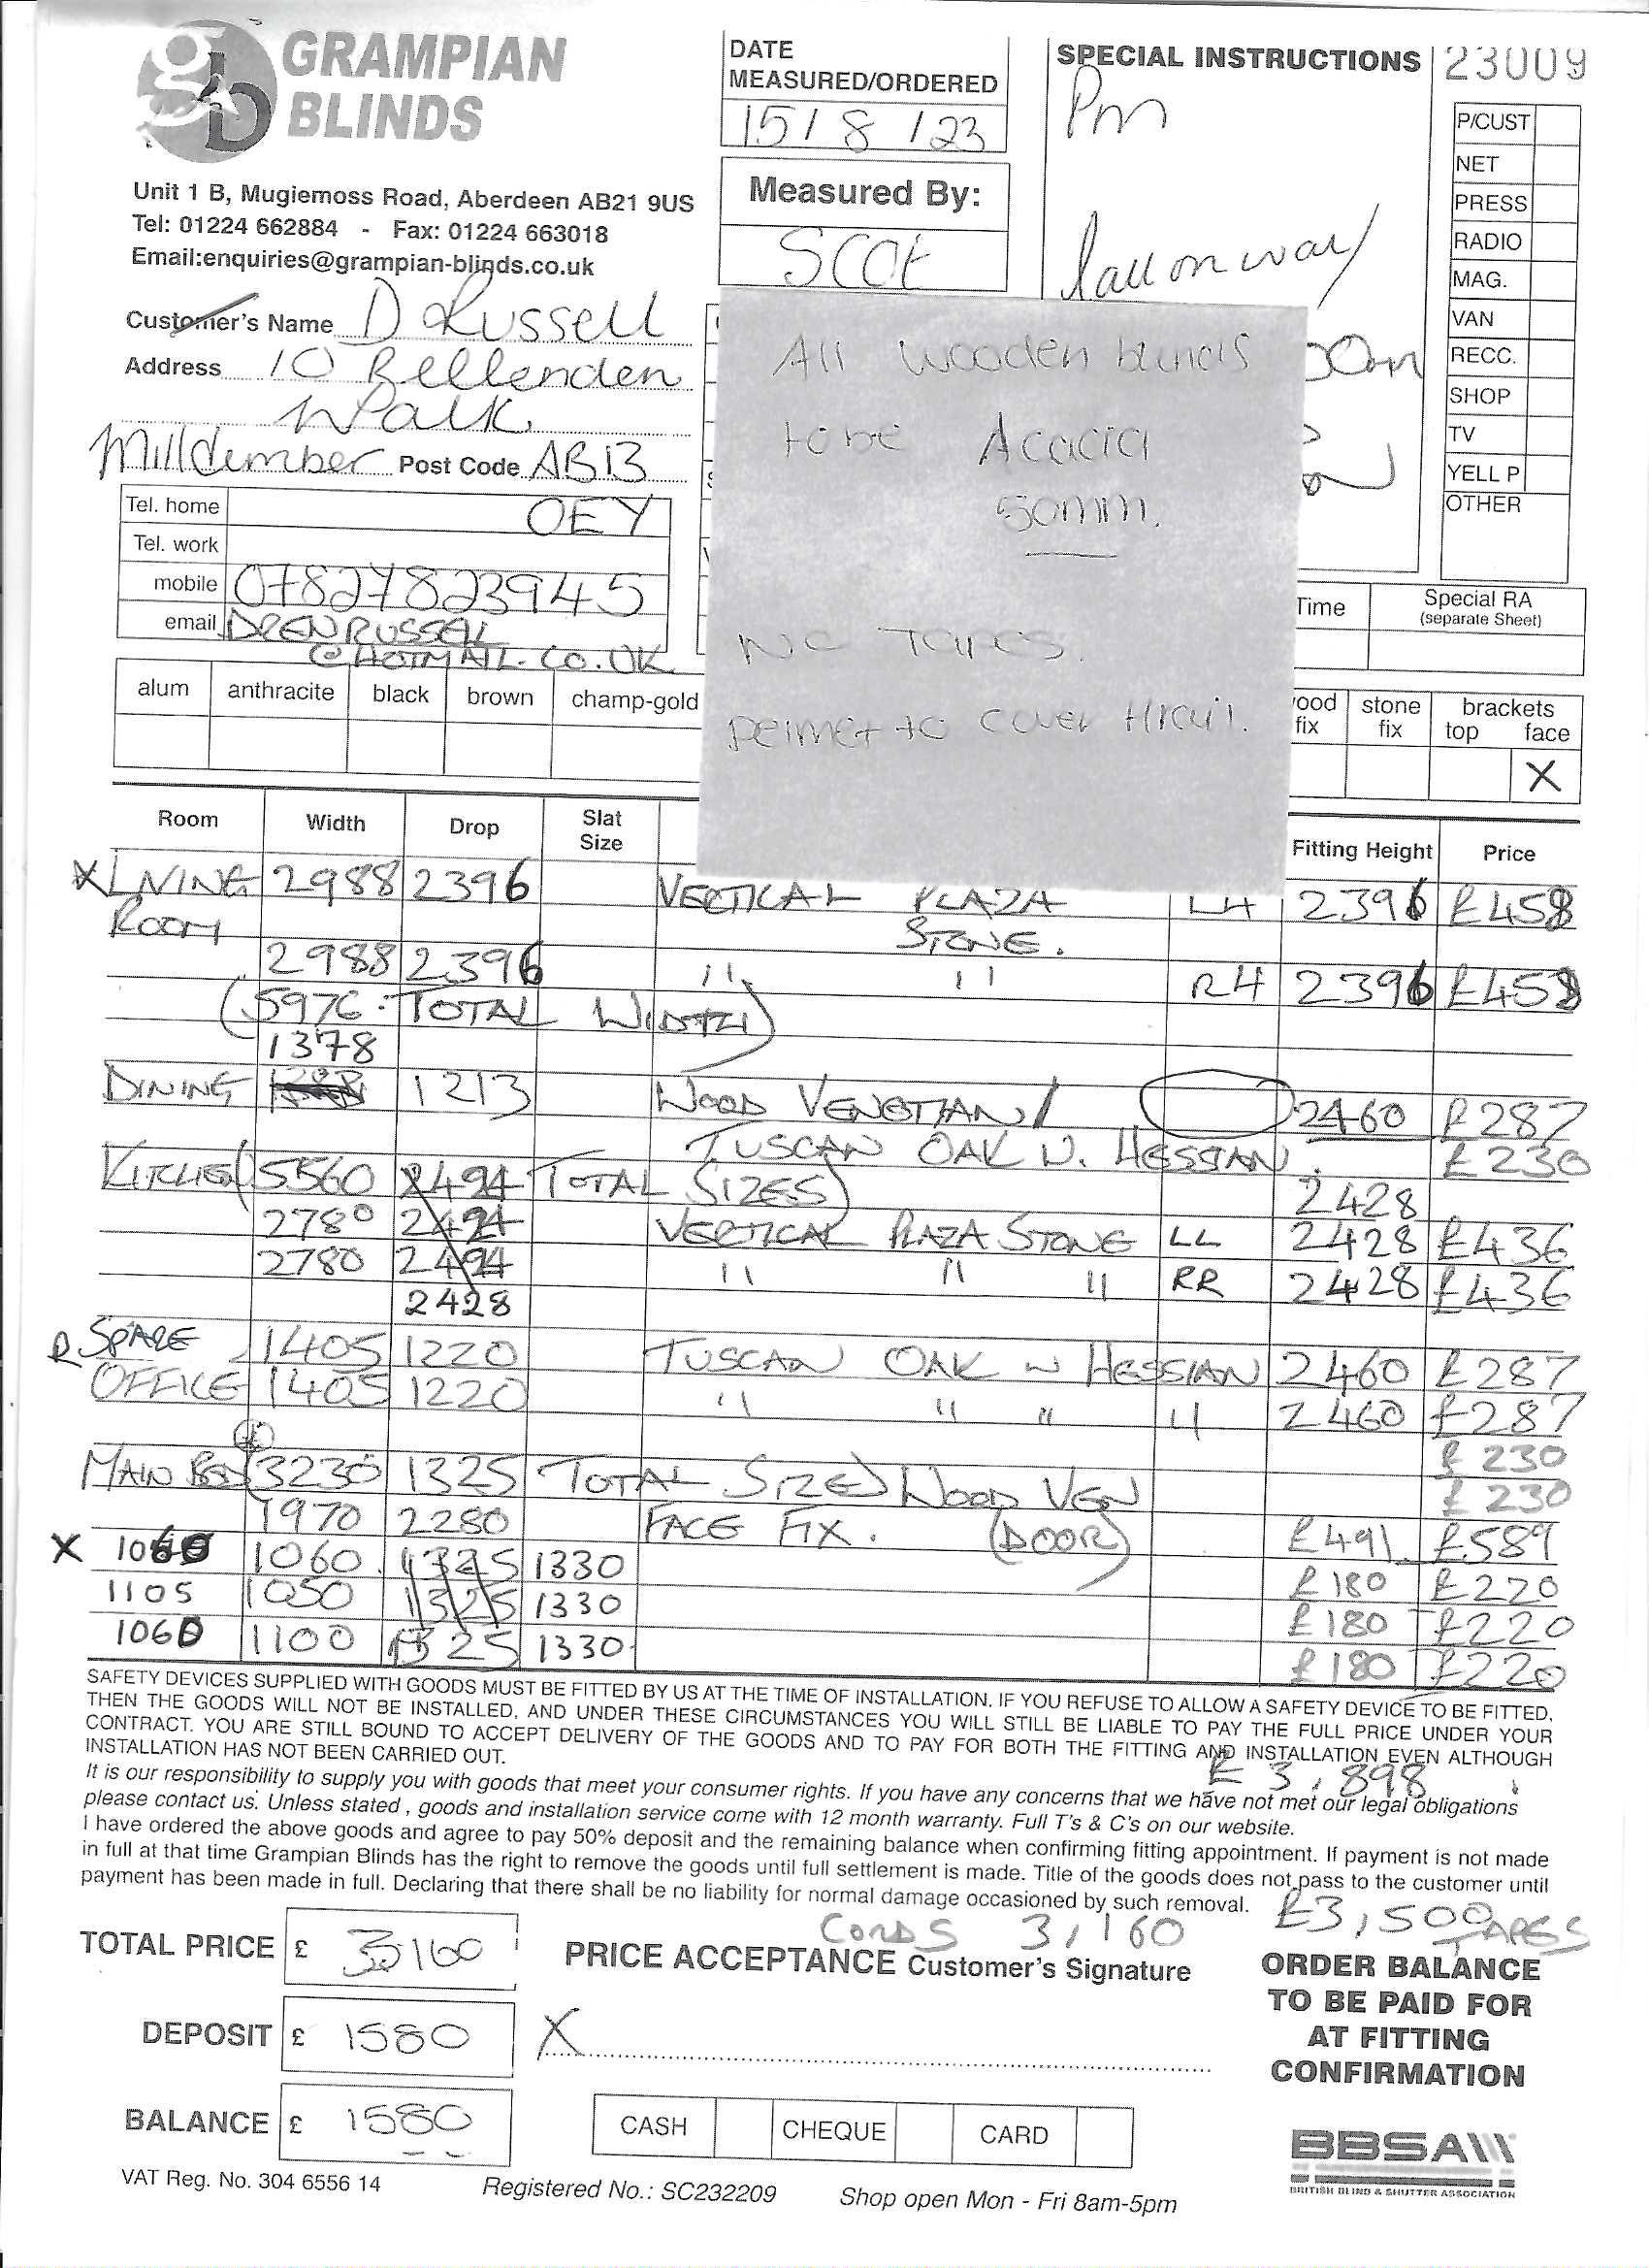 GRAMPIAN
BLINDS
Unit 1 B, Mugiemoss Road, Aberdeen AB21 9US
Tel: 01224 662884 - Fax: 01224 663018
Email:enquiries@grampian-blinds.co.uk
DATE
MEASURED/ORDERED
15/8/23
Measured By:
SCOt
SPECIAL INSTRUCTIONS
Pm
Call on way
23009
P/CUST
NET
PRESS
RADIO
MAG.
VAN
RECC.
SHOP
TV
YELL P
OTHER
Customer's Name D Russell
Address 10 Bellenden
Walk
Milltimber Post Code AB13
Tel. home 0EY
Tel. work
mobile 07827823945
email DRENRUSSELL
@HOTMAIL.CO.UK
All wooden blinds
to be Acacia
50mm.
No Tapes.
pelmet to cover Hrail.
Time
Special RA
(separate Sheet)
alum anthracite black brown champ-gold
ood fix stone fix brackets top face
X
Room Width Drop Slat Size Fitting Height Price
X LIVING 2988 2396 VERTICAL PLAZA LH 2396 £458
ROOM STONE.
2988 2396 " " RH 2396 £458
(5976 - TOTAL WIDTH)
1378
DINING 1213 WOOD VENETIAN/ 2460 £287
TUSCAN OAK W. HESSIAN. £230
KITCHEN (5560 2494 TOTAL SIZES) 2428
2780 2494 VERTICAL PLAZA STONE LL 2428 £436
2780 2494 " " " RR 2428 £436
2428
R SPARE 1405 1220 TUSCAN OAK W HESSIAN 2460 £287
OFFICE 1405 1220 " " " " 2460 £287
£230
MAIN BED (3230 1325 TOTAL SIZE) WOOD VEN £230
1970 2280 FACE FIX. (DOOR) £491 £589
X 1060 1060 1325 1330 £180 £220
1105 1050 1325 1330 £180 £220
1060 1100 1325 1330 £180 £220
SAFETY DEVICES SUPPLIED WITH GOODS MUST BE FITTED BY US AT THE TIME OF INSTALLATION. IF YOU REFUSE TO ALLOW A SAFETY DEVICE TO BE FITTED,
THEN THE GOODS WILL NOT BE INSTALLED, AND UNDER THESE CIRCUMSTANCES YOU WILL STILL BE LIABLE TO PAY THE FULL PRICE UNDER YOUR
CONTRACT. YOU ARE STILL BOUND TO ACCEPT DELIVERY OF THE GOODS AND TO PAY FOR BOTH THE FITTING AND INSTALLATION EVEN ALTHOUGH
INSTALLATION HAS NOT BEEN CARRIED OUT.
£3,898
It is our responsibility to supply you with goods that meet your consumer rights. If you have any concerns that we have not met our legal obligations
please contact us. Unless stated, goods and installation service come with 12 month warranty. Full T's & C's on our website.
I have ordered the above goods and agree to pay 50% deposit and the remaining balance when confirming fitting appointment. If payment is not made
in full at that time Grampian Blinds has the right to remove the goods until full settlement is made. Title of the goods does not pass to the customer until
payment has been made in full. Declaring that there shall be no liability for normal damage occasioned by such removal.
£3,500 TAPES
CORDS 3,160
TOTAL PRICE £ 3,160
PRICE ACCEPTANCE Customer's Signature
DEPOSIT £ 1580
X
BALANCE £ 1580
CASH CHEQUE CARD
ORDER BALANCE
TO BE PAID FOR
AT FITTING
CONFIRMATION
BBSA
BRITISH BLIND & SHUTTER ASSOCIATION
VAT Reg. No. 304 6556 14 Registered No.: SC232209 Shop open Mon - Fri 8am-5pm